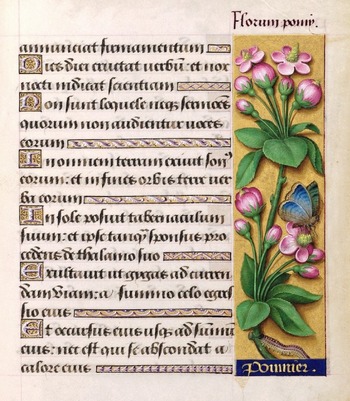 Florum pomy.
annunciat firmamentum
Dies diei eructat verbũ: et nox
nocti indicat scientiam
Non sunt loquele neqꝫ sermones
quorum non audientur voces
eorum
In omnem terram exivit sonꝰ
eorum: et in fines orbis terre ver
ba eorum
In sole posuit tabernaculum
suum: et ipse tanqͣ sponsus pro
cedens de thalamo suo
Exultavit ut gigas ad curren
dam viam: a summo celo egres
sio eius
Et occursus eius usqꝫ ad summũ
eius: nec est qui se abscondat a
calore eius
Pommier.